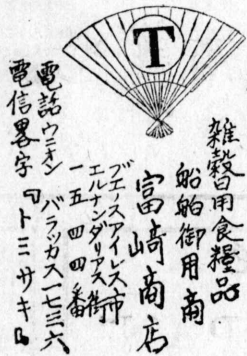 T
雑穀日用食糧品
船舶御用商
富崎商店
ブエノスアイレス市
エルナンダリアス街
一五四四番
電話ウニオン バラッカス一七三六
電信畧字『トミサキ』